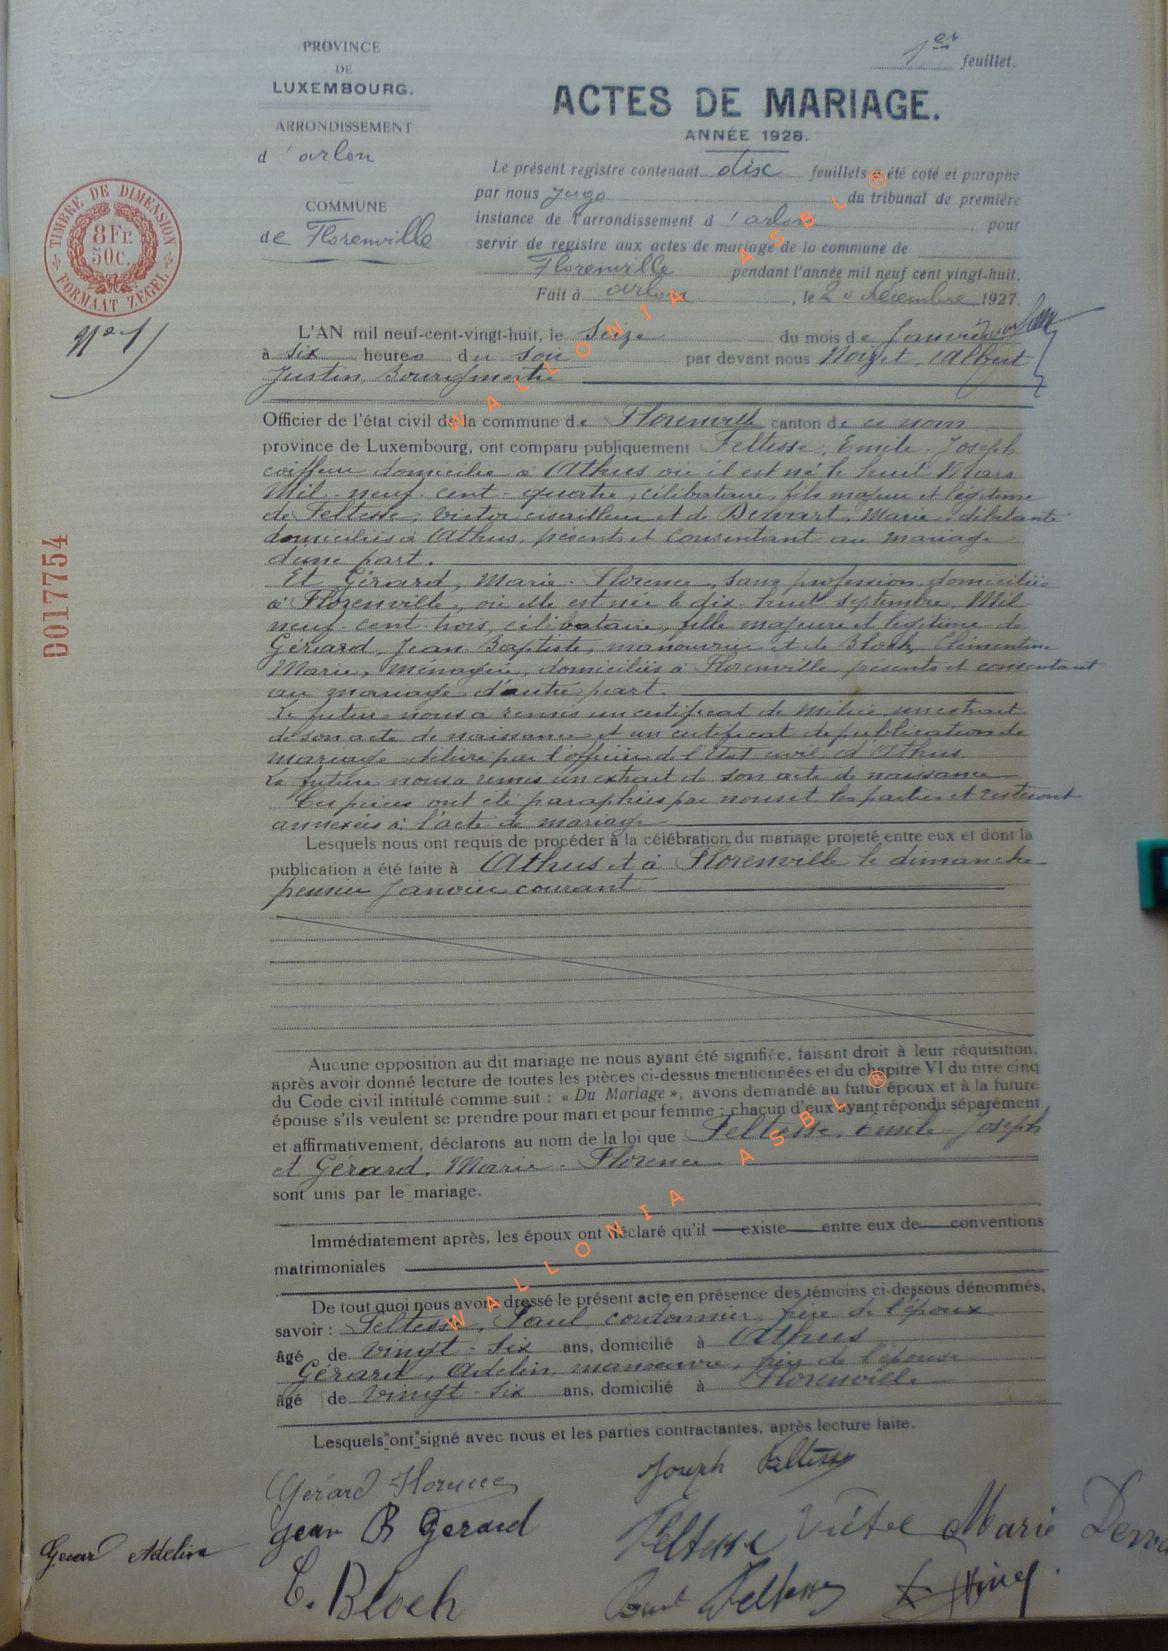 1er feuillet.
PROVINCE
DE
LUXEMBOURG.
ARRONDISSEMENT
d'arlon
COMMUNE
de Florenville
TIMBRE DE DIMENSION
8Fr.
50c.
FORMAAT ZEGEL
D017754
ACTES DE MARIAGE.
ANNÉE 1928.
Le présent registre contenant dix feuillets a été coté et paraphé
par nous Juge du tribunal de première
instance de l'arrondissement d'arlon, pour
servir de registre aux actes de mariage de la commune de
Florenville pendant l'année mil neuf cent vingt-huit.
Fait à arlon, le 20 décembre 1927.
N° 1
L'AN mil neuf-cent-vingt-huit, le Seize du mois de Janvier
à six heures du soir par devant nous Noizet, Albert
Justin, Bourgmestre
Officier de l'état civil de la commune de Florenville canton de ce nom
province de Luxembourg, ont comparu publiquement Feltesse, Emile-Joseph
coiffeur domicilié à Athus où il est né le huit Mars
Mil-neuf-cent-quatre, célibataire, fils majeur et légitime
de Feltesse, Victor cisailleur et de Marie débitante
domiciliés à Athus, présents et consentant au mariage
d'une part.
Et Gérard, Marie-Florence, sans profession, domiciliée
à Florenville, où elle est née le dix-huit septembre, Mil
neuf-cent-trois, célibataire, fille majeure et légitime de
Gérard, Jean-Baptiste, manoeuvre et de Bloch, Clémentine
Marie, ménagère, domiciliés à Florenville, présents et consentant
au mariage d'autre part.
Le futur nous a remis un certificat de Milice, un extrait
de son acte de naissance et un certificat de publication de
mariage délivré par l'officier de l'Etat civil d'Athus.
La future nous a remis un extrait de son acte de naissance
Ces pièces ont été paraphées par nous et les parties et resteront
annexées à l'acte de mariage
Lesquels nous ont requis de procéder à la célébration du mariage projeté entre eux et dont la
publication a été faite à Athus et à Florenville le dimanche
premier Janvier courant
Aucune opposition au dit mariage ne nous ayant été signifiée, faisant droit à leur réquisition,
après avoir donné lecture de toutes les pièces ci-dessus mentionnées et du chapitre VI du titre cinq
du Code civil intitulé comme suit : « Du Mariage », avons demandé au futur époux et à la future
épouse s'ils veulent se prendre pour mari et pour femme ; chacun d'eux ayant répondu séparément
et affirmativement, déclarons au nom de la loi que Feltesse, Emile-Joseph
et Gérard, Marie-Florence
sont unis par le mariage.
Immédiatement après, les époux ont déclaré qu'il existe entre eux de conventions
matrimoniales
De tout quoi nous avons dressé le présent acte en présence des témoins ci-dessous dénommés,
savoir : Feltesse, Paul, cordonnier, frère de l'époux
âgé de vingt-six ans, domicilié à Athus
Gérard, Adelin, manoeuvre, frère de l'épouse
âgé de vingt-six ans, domicilié à Florenville
Lesquels ont signé avec nous et les parties contractantes, après lecture faite.
Gérard Florence Joseph Feltesse
Jean B Gerard Feltesse Victor Marie
Gerard Adelin
C. Bloch Paul Feltesse
WALLONIA ASBL®
WALLONIA ASBL®